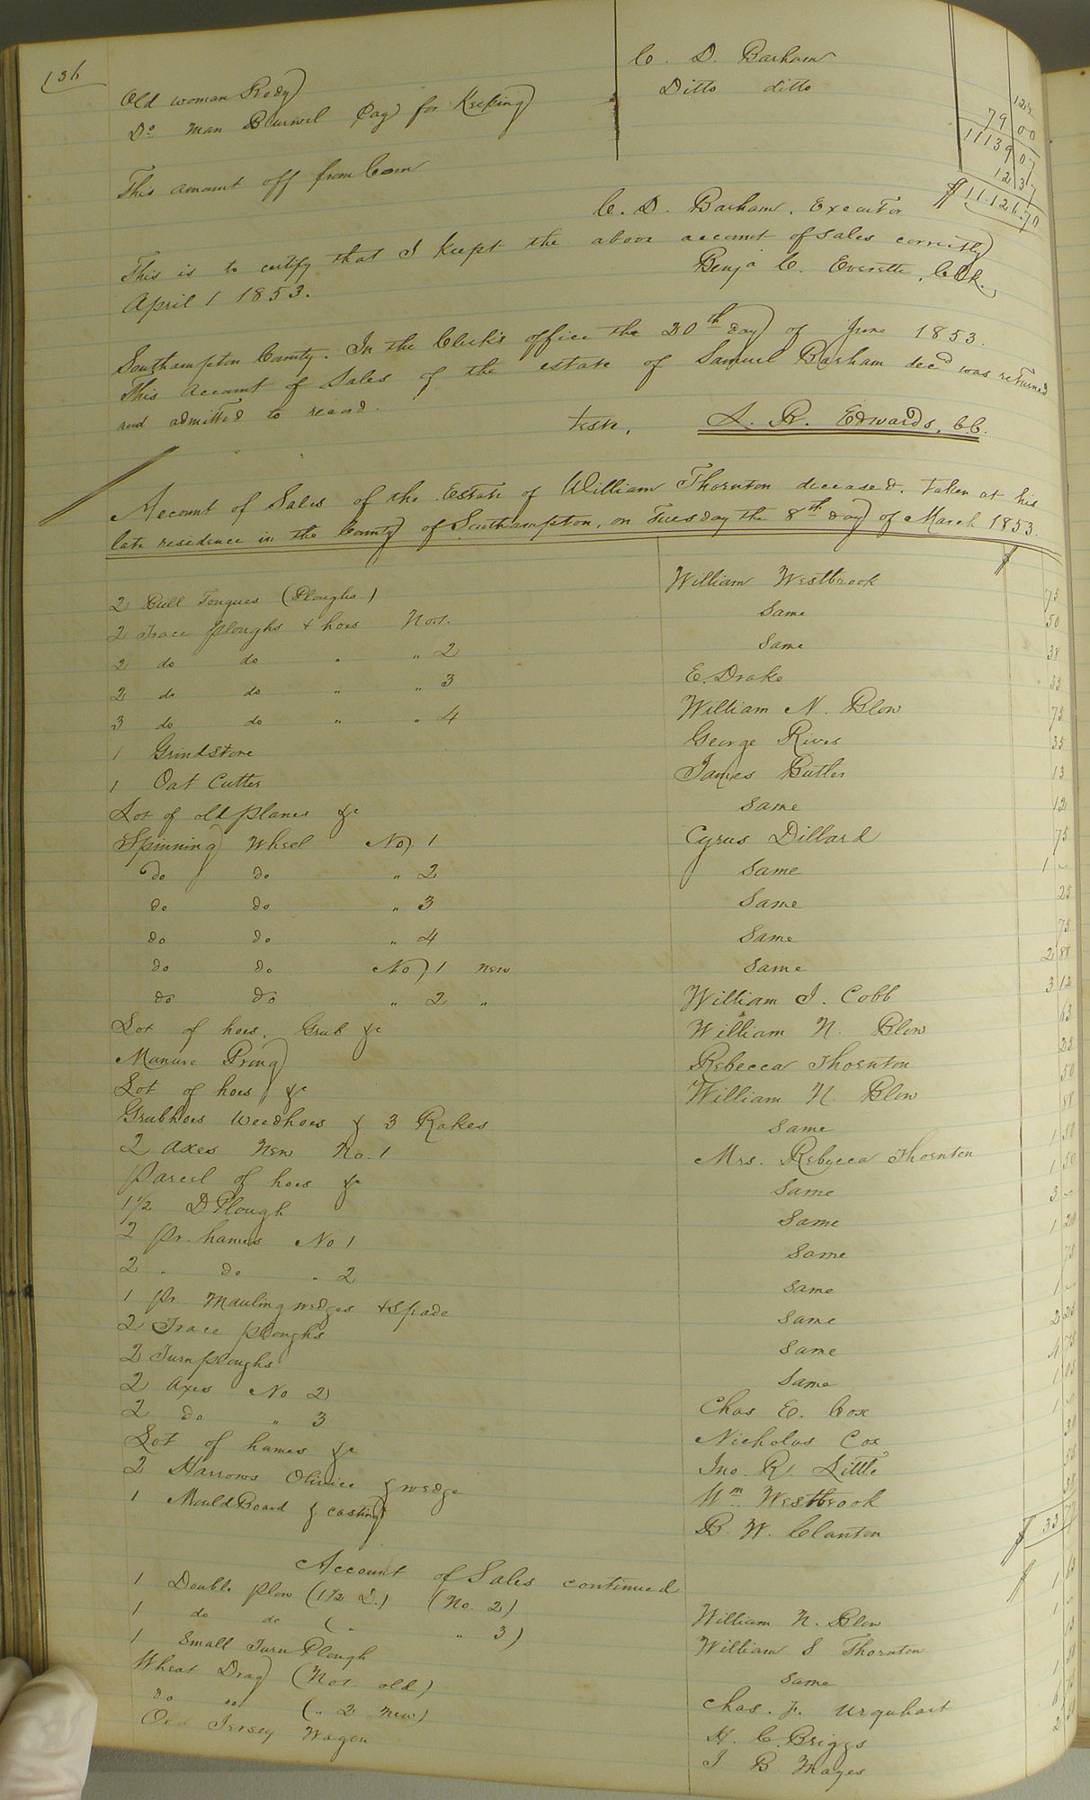 136
Old woman Rody C. D. Barham
Do man Burwel (pay for Keeping) Ditto ditto 79 00
11139 07
This amount off from Corn 12 37
$11.126.70
C. D. Barham. Executor
This is to certify that I kept the above account of sales correctly
April 1 1853. Benja C. Everette, Clk.
Southampton County. In the Clerk's office the 20th day of June 1853.
This Account of Sales of the estate of Samuel Barham decd was returned
and admitted to record.
Teste, L. R. Edwards, CC.
Account of Sales of the Estate of William Thornton deceased. taken at his
late residence in the County of Southampton, on Tuesday the 8th day of March 1853.
$
2 Bull Tongues (Ploughs) William Westbrook 75
2 Trace ploughs & hoes No 1. Same 50
2 do do " " 2 Same 38
2 do do " " 3 E. Drake
3 do do " " 4 William N. Blow 75
1 Grindstone George Rives 35
1 Oat Cutter James Butler 13
Lot of old planes &c Same 12
Spinning Wheel No 1 Cyrus Dillard 75
do do " 2 Same 1 ~
do do " 3 Same 25
do do " 4 Same 75
do do No 1 new Same 2 88
do do " 2 " William J. Cobb 3 12
Lot of hoes, Grub &c William N. Blow 63
Manure Prong Rebecca Thornton
Lot of hoes &c William N. Blow 50
Grubhoes Weedhoes & 3 Rakes Same
2 Axes New No. 1 Mrs. Rebecca Thornton 1 50
Parcel of hoes &c Same 1 50
1 1/2 D Plough Same 3 ~
2 Pr. hames No 1 Same 1 20
2 " do " 2 Same 75
1 pr Mauling wedges & Spade Same 1 ~
2 Trace ploughs Same 2 25
2 Turn ploughs Same
2 Axes No 2 Chas E. Cox
2 do " 3 Nicholas Cox
Lot of hames &c Jno. R. Little
2 Harrows &wedge Wm Westbrook
1 Mould Board & casting B. W. Clanton
$ 33
Account of Sales continued $
1 Double plow (1 1/2 D.) (No. 2) William N. Blow
1 do do ( " " 3) William S Thornton
1 Small Turn Plough Same
Wheat Drag (No 1 old) Chas. F. Urquhart
do do ( " 2 new) H. C. Briggs
Old Jersey Wagon J B Mayes